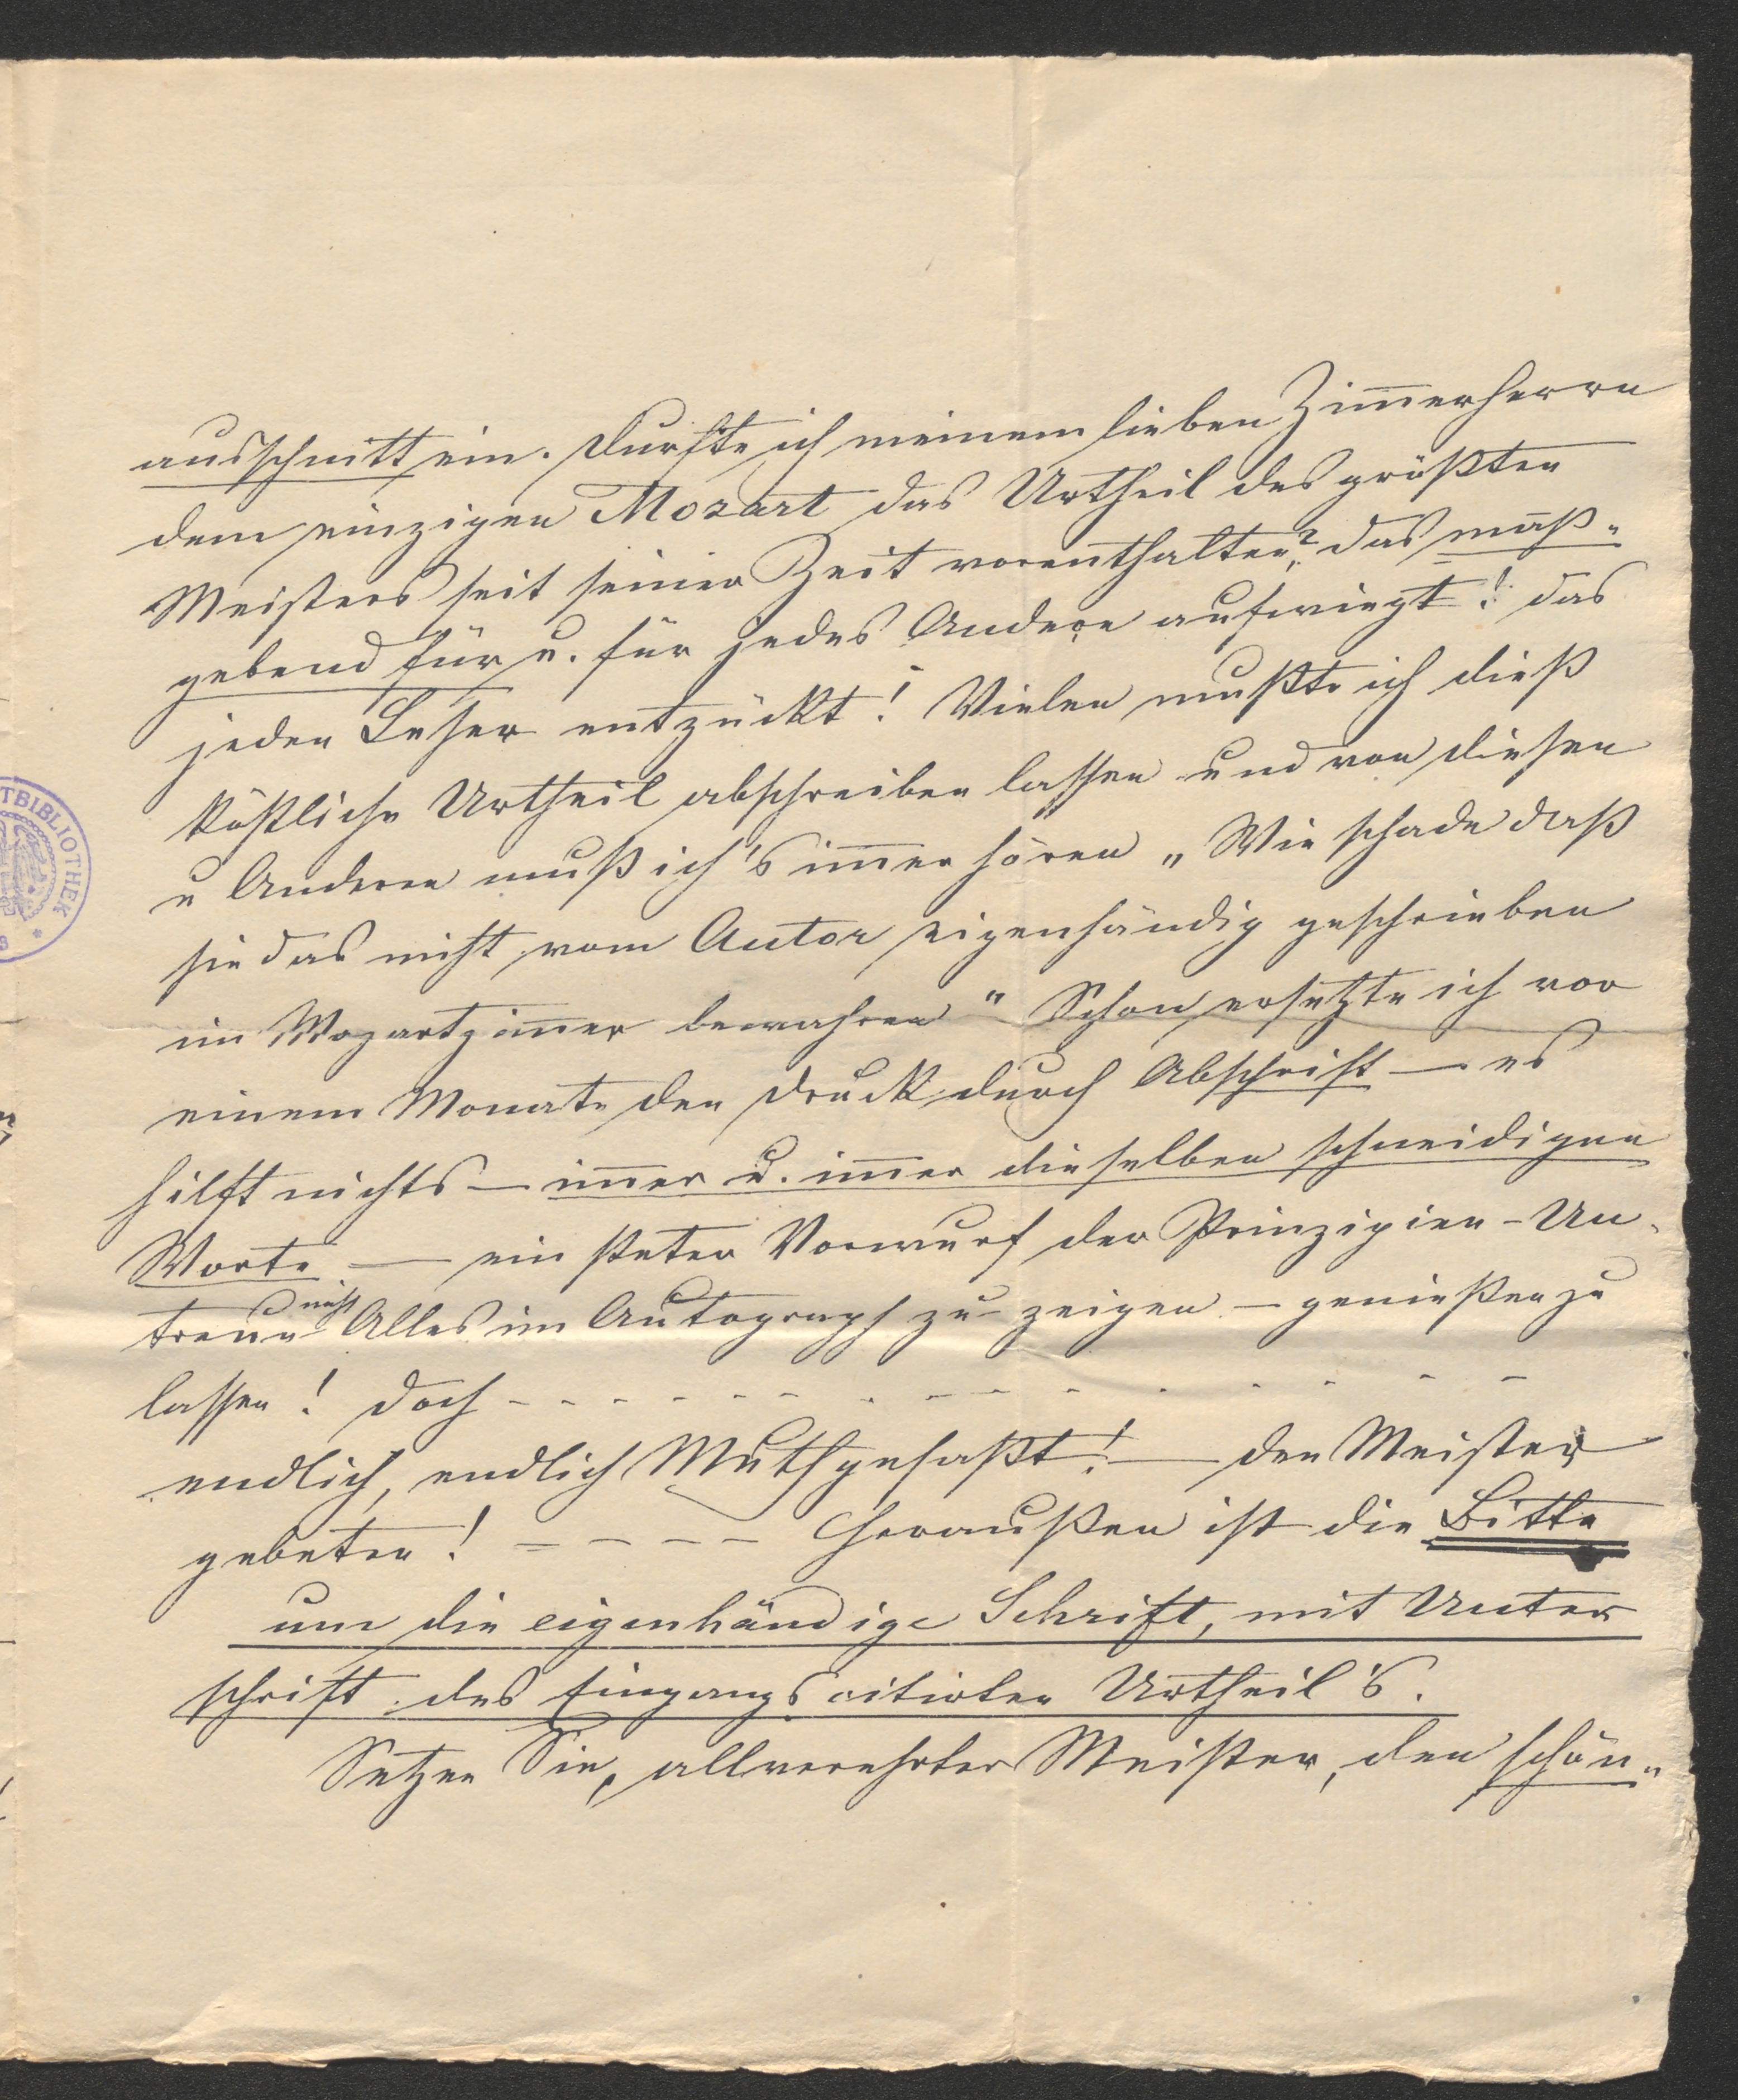 ausschnitt ein. Durfte ich meinem lieben Zim̅erherrn
dem einzigen Mozart das Urtheil des größten
Meisters seit seiner Zeit vorenthalten? das maß-
gebend für u. für jedes Andere aufwiegt! das
jeden Leser entzückt! Vielen mußte ich dieß
köstliche Urtheil abschreiben lassen und von diesen
u Anderen muß ich's im̅er hören „Wie schade daß
sie das nicht vom Autor eigenhändig geschrieben
im Mozartzim̅er bewahren" Schon ersetzte ich vor
einem Monate den Druck durch Abschrift — es
hilft nichts — im̅er u. im̅er dieselben schneidigen
Worte — ein steter Vorwurf der Prinzipien-Un-
treue nicht Alles im Autograph zu zeigen — genießen zu
lassen! Doch - - - - - - - - - - - - - - -
endlich, endlich Muth gefaßt! — den Meister
gebeten! - - - - Heraußen ist die Bitte
um die eigenhändige Schrift, mit Unter
schrift des Eingangs citirten Urtheil's.
Setzen Sie, allverehrter Meister, den schön-
TBIBLIOTHEK